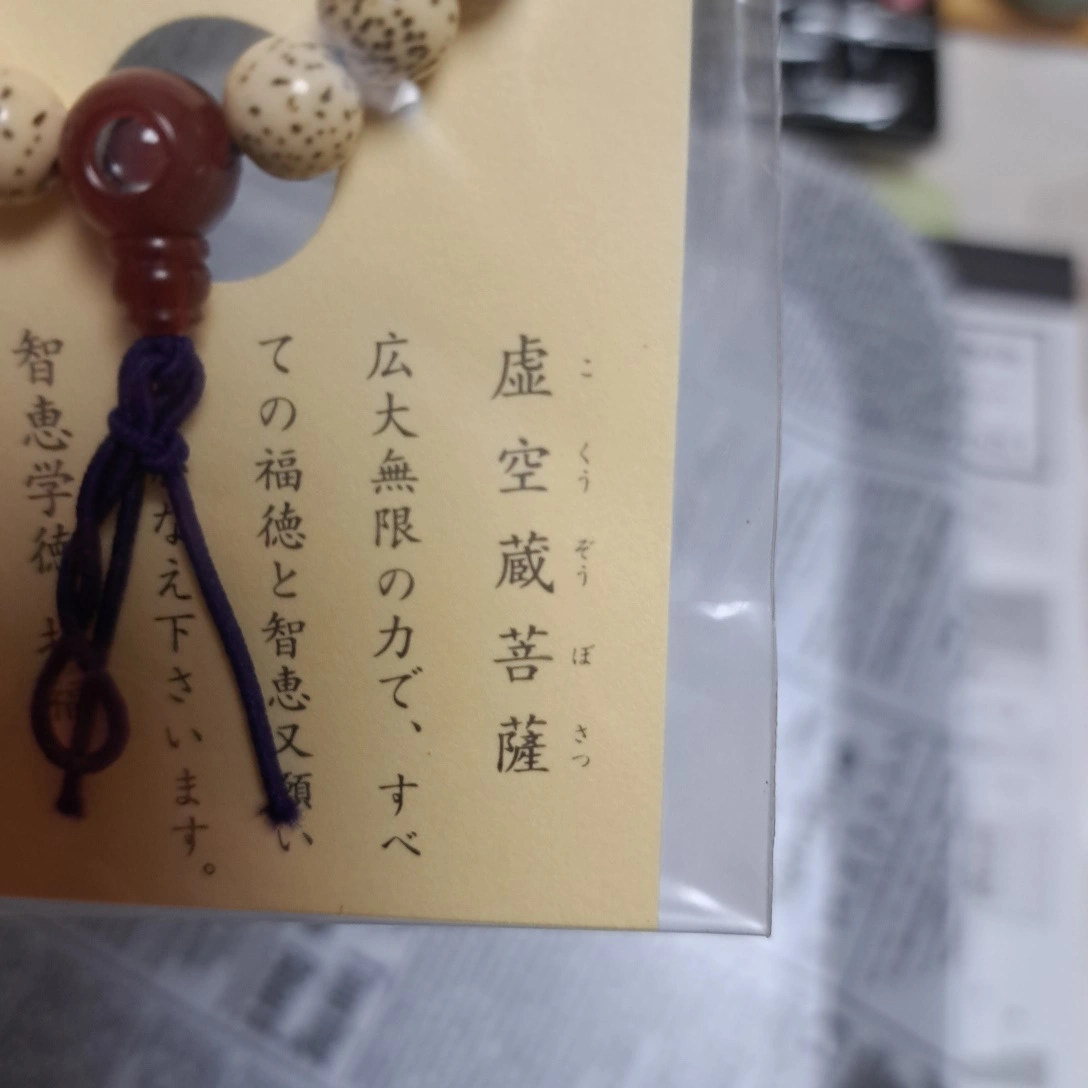 虚空蔵菩薩
こくうぞうぼさつ
広大無限の力で、すべ
ての福徳と智恵又願い
なえ下さいます。
智恵学徳